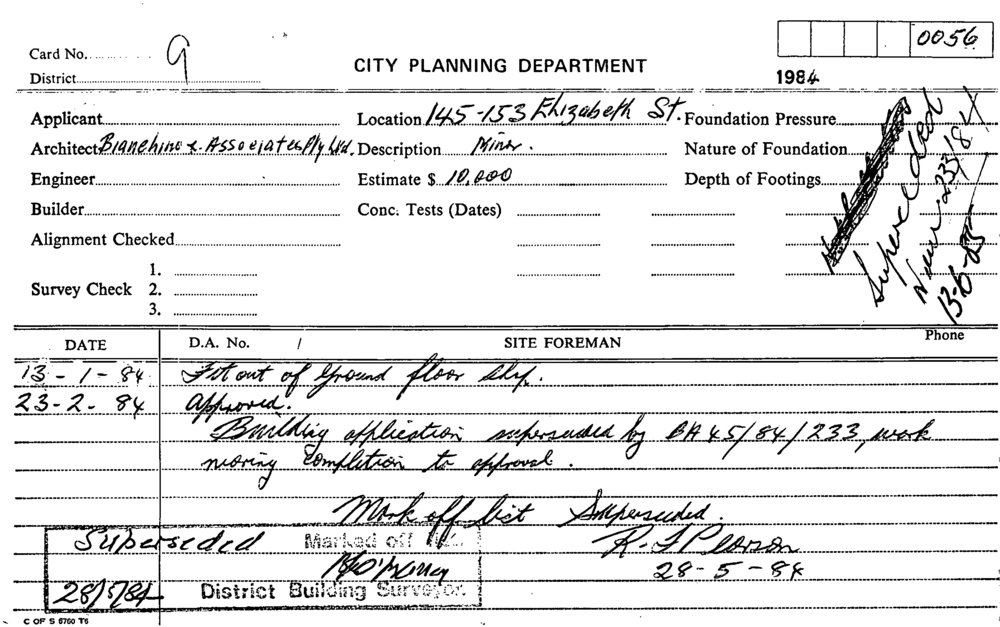 0056
Card No. 9
District
CITY PLANNING DEPARTMENT
1984
Applicant
Location 145-153 Elizabeth St.
Foundation Pressure
Architect Bianchino & Associates Pty Ltd.
Description Minor.
Nature of Foundation
Engineer
Estimate $ 10,000
Depth of Footings
Builder
Conc. Tests (Dates)
Alignment Checked
Survey Check
1.
2.
3.
Superceded
233/84
13-6-85
DATE
D.A. No. /
SITE FOREMAN
Phone
13-1-84 Fit out of ground floor shop.
23-2-84 Approved.
Building application superseded by BA 45/84/233, work
nearing completion to approval.
Mark off list Superseded.
Superseded Marked off
R. J. Pearson
28-5-84
28/5/84 District Building Surveyor.
C OF S 6760 T6